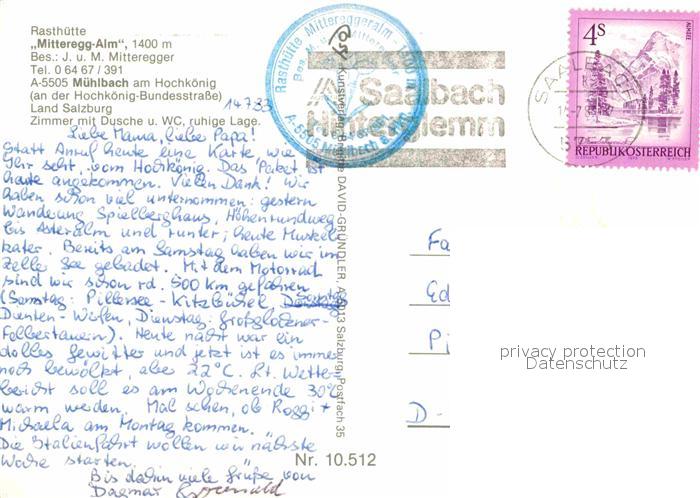 Rasthütte
„Mitteregg-Alm", 1400 m
Bes.: J. u. M. Mitteregger
Tel. 0 64 67 / 391
A-5505 Mühlbach am Hochkönig
(an der Hochkönig-Bundesstraße)
Land Salzburg
Zimmer mit Dusche u. WC, ruhige Lage.
14.7.83
Liebe Mama, liebe Papa!
Statt Anruf heute eine Karte wie
Ihr seht, vom Hochkönig. Das Paket ist
heute angekommen. Vielen Dank! Wir
haben schon viel unternommen: gestern
Wanderung Spielberghaus, Höhenrundweg
bis Asteralm und runter; heute Muskel-
kater. Bereits am Samstag haben wir im
Zeller See gebadet. Mit dem Motorrad
sind wir schon rd. 500 km gefahren
(Samstag: Pillersee - Kitzbühel Sonntag
Dienten - Werfen, Dienstag: Großglockner-
Felbertauern). Heute nacht war ein
dolles Gewitter und jetzt ist es immer
noch bewölkt, aber 22°C. Lt. Wetter-
bericht soll es am Wochenende 30°C
warm werden. Mal sehen, ob Rossi +
Michaela am Montag kommen.
Die Italienfahrt wollen wir nächste
Woche starten.
Bis dahin viele Grüße von
Dagmar
Rasthütte Mittereggeralm - 1400 m
Bes. M. Mitteregger
A-5505 Mühlbach a. Hkg.
Saalbach
Hinterglemm
SAALBACH
5753
4S
ALMSEE
REPUBLIK ÖSTERREICH
Kunstverlag Brigitte DAVID-GRÜNDLER, A-5013 Salzburg, Postfach 35
Fa
Ed
Pi
D -
Nr. 10.512
privacy protection
Datenschutz